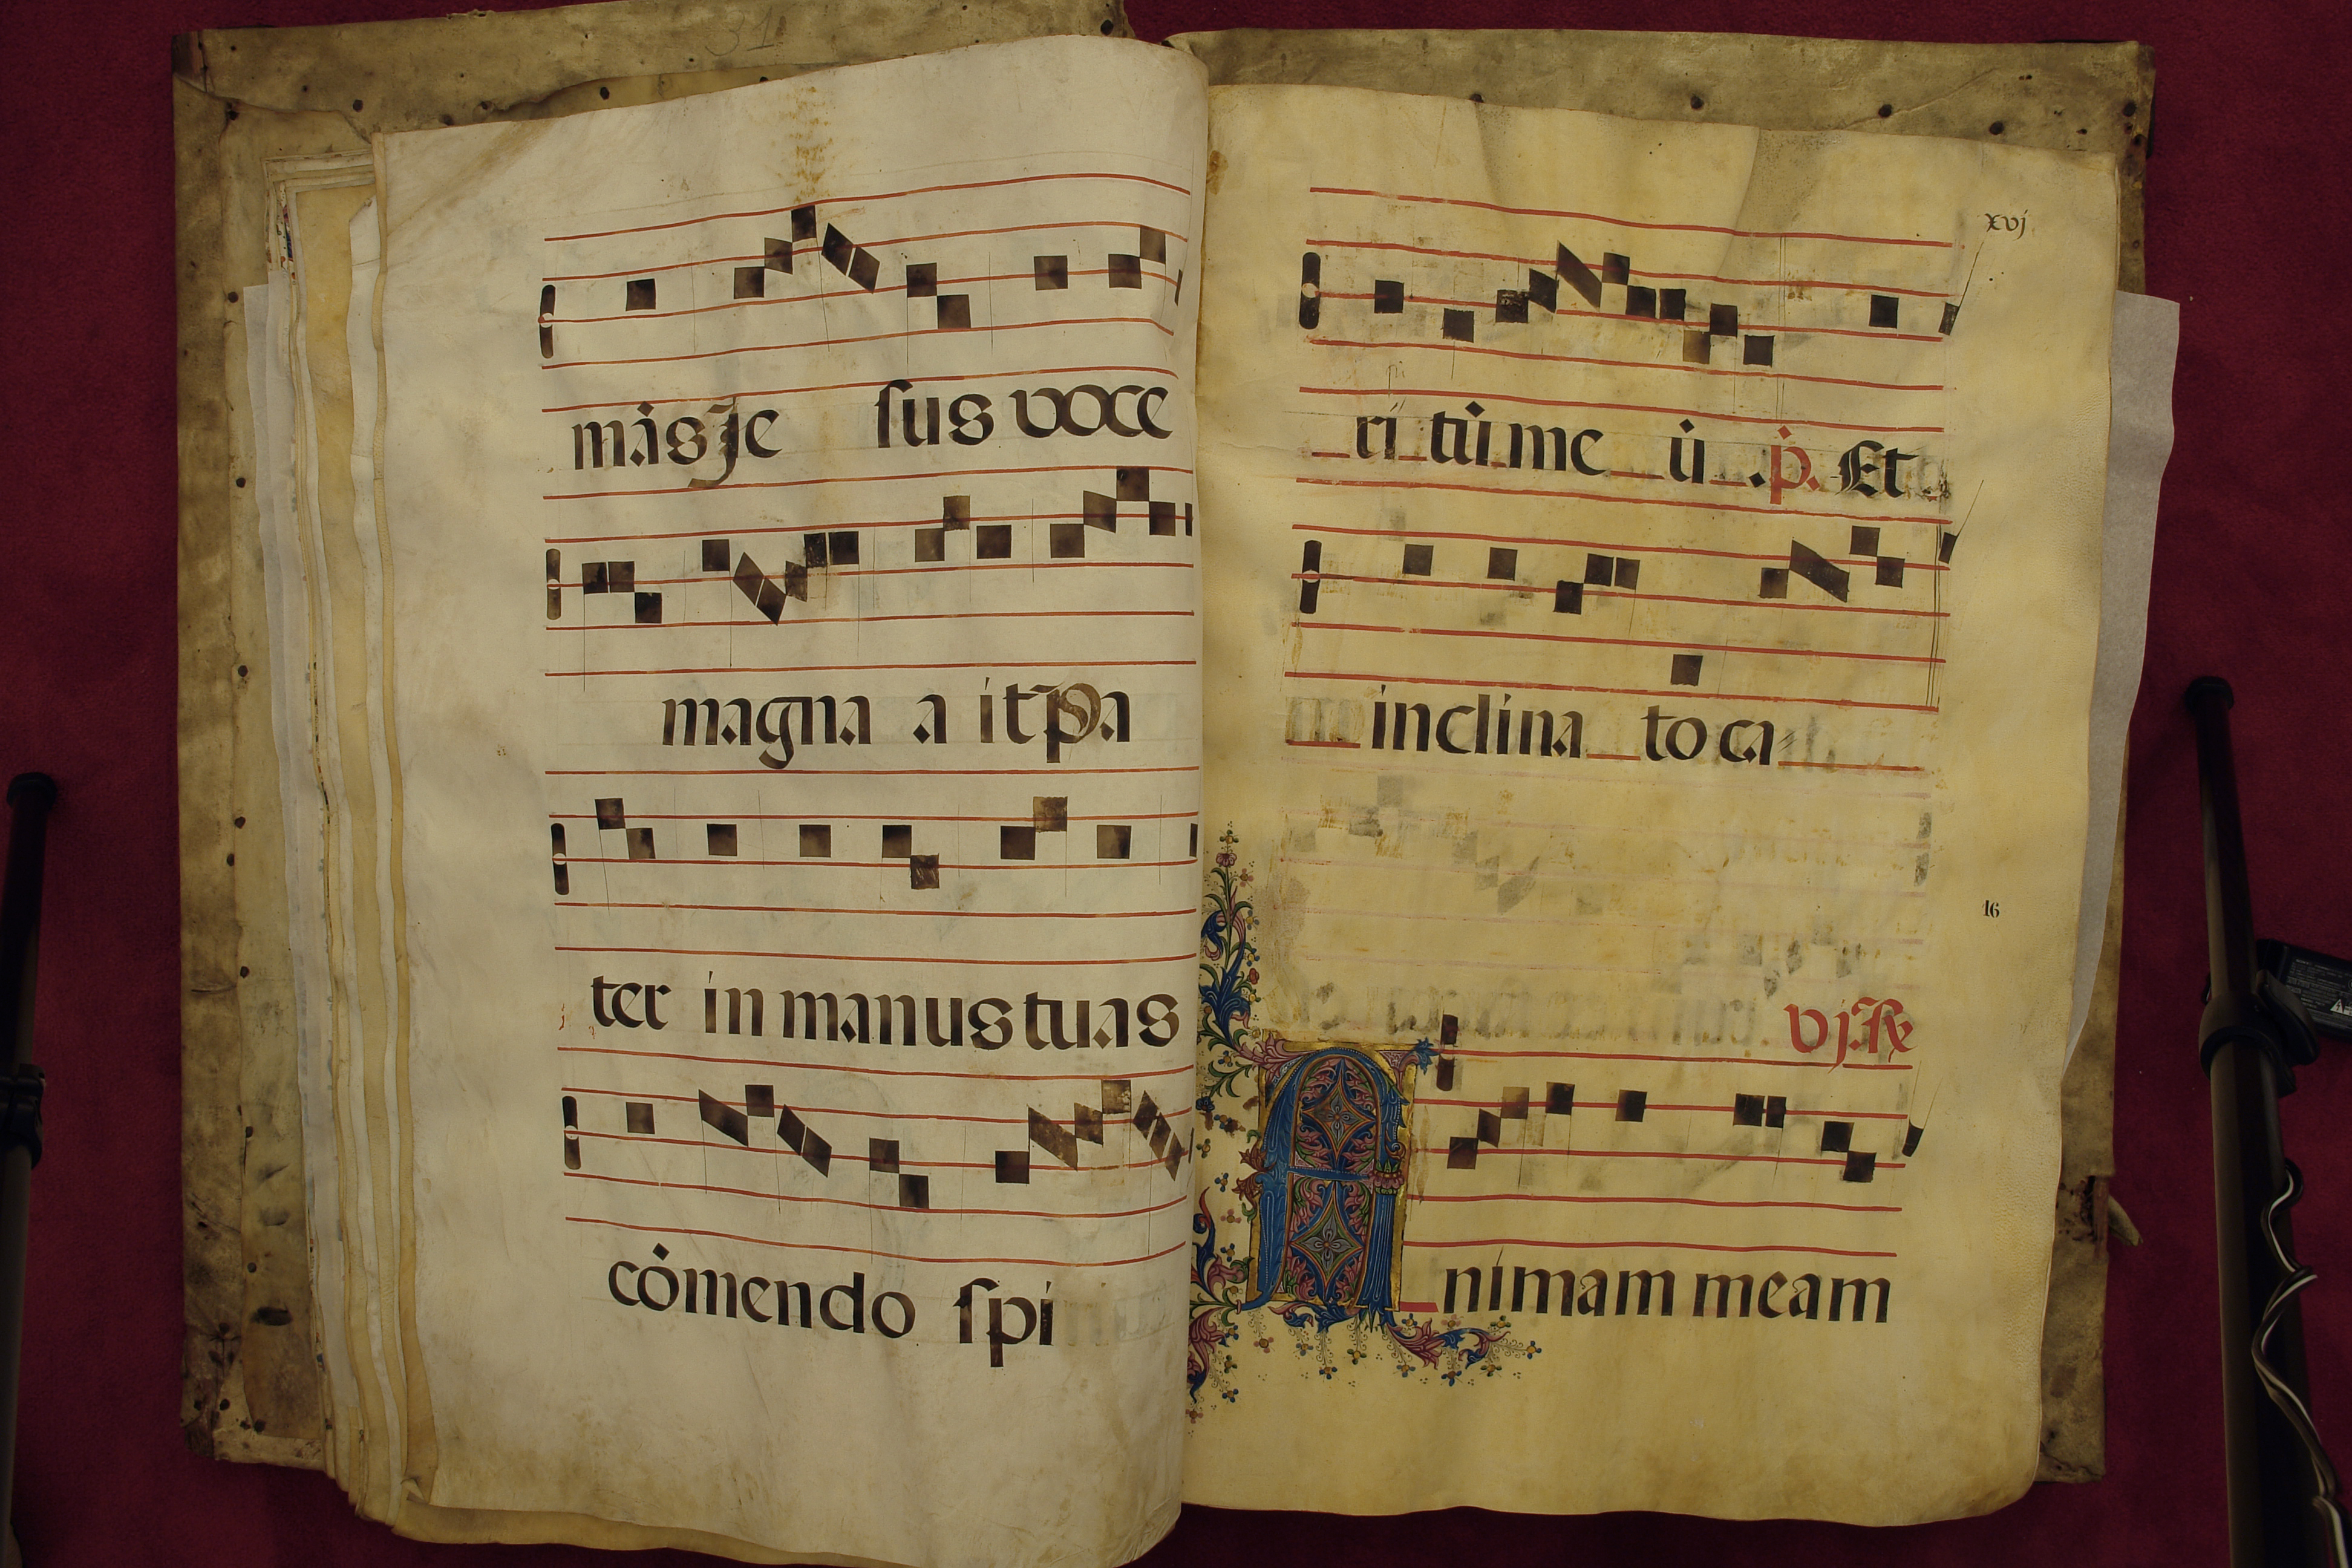 31
mȧs Je sus voce
magna a it p̄a
ter in manus tuas
cȯmendo ſpi
xvj
ri tu̇ me u̇ . ṗ. Et
inclina to ca
16
vj. R
A nimam meam